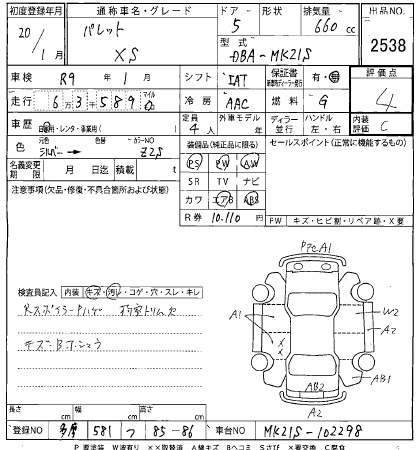 初度登録年月 通称車名・グレード ドア 形状 排気量 出品NO.
20/1月 パレット XS 5 660cc 2538
型式 DBA-MK21S
車検 R9年1月 シフト IAT 保証書 有・無 評価点 4
走行 63589 マイル 冷房 AAC 燃料 G
車歴 自家用・レンタ・事業用( ) 定員 4人 外車モデル 年 ディーラー 並行 ハンドル 左・右 内装評価 C
色 元色 シルバー → 色替 カラーNO Z2S
装備品(純正品に限る) セールスポイント(正常に機能するもの)
名義変更期限 月 日迄 積載 t
PS PW AW
SR TV ナビ
カワ エアB ABS
R券 10.110円
注意事項(欠品・修復・不具合箇所および状態)
FW キズ・ヒビ割・リペア跡・X要
検査員記入 内装 キズ・汚れ・コゲ・穴・スレ・キレ
RスポイラーPハゲ
キズ・B
PタレA1
A1
W2
A2
AB1
AB2
A2
X
X
長さ cm 幅 cm 高さ cm
登録NO 多摩 581 つ 85-86 車台NO MK21S-102298
P要塗装 W波有り XX取替済 A線キズ Bヘコミ Sさび X要交換 C腐食